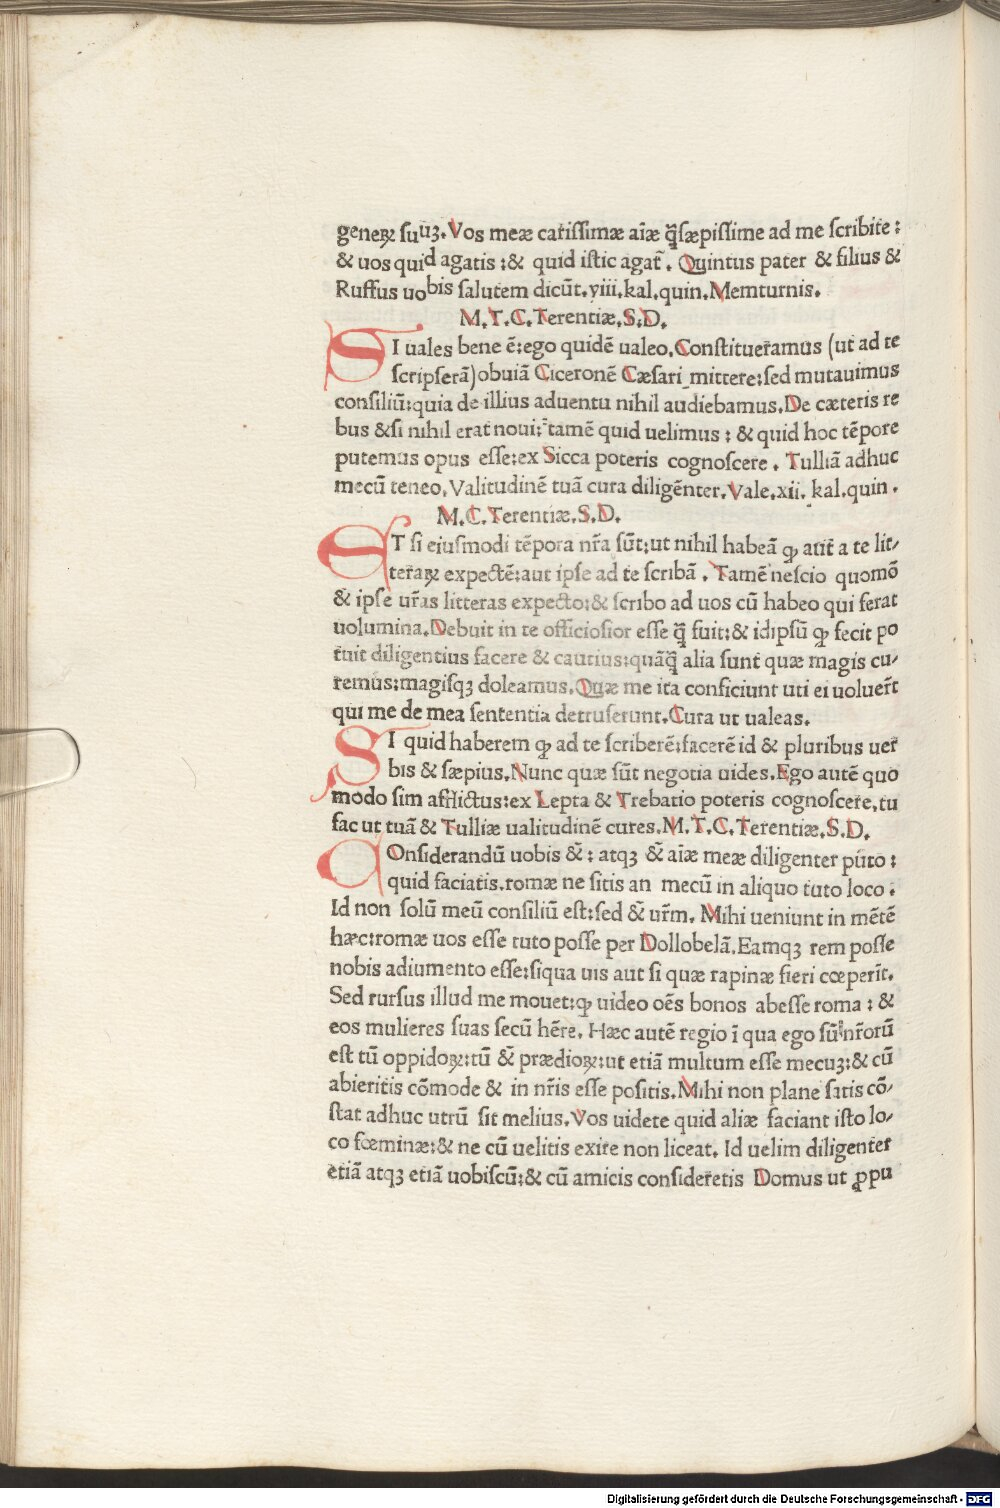 geneꝝ suūꝫ. Vos meæ carissimæ aīæ q̄sæpissime ad me scribite:
& uos quid agatis: & quid istic agat̄. Quintus pater & filius &
Ruffus uobis salutem dicūt. viii. kal. quin. Memturnis.
M. T. C. Terentiæ. S. D.
SI uales bene ē: ego quidē ualeo. Constitueramus (ut ad te
scripserā) obuiā Ciceronē Cæsari mittere: sed mutauimus
consiliū: quia de illius aduentu nihil audiebamus. De cæteris re
bus & si nihil erat noui: tamē quid uelimus: & quid hoc tēpore
putemus opus esse: ex Sicca poteris cognoscere. Tulliā adhuc
mecū teneo. Valitudinē tuā cura diligēnter. Vale. xii. kal. quin.
M. C. Terentiæ. S. D.
ET si eiusmodi tēpora nr̄a sūt: ut nihil habeā ꝙ aut̄ a te lit-
teraꝝ expectē: aut ipse ad te scribā. Tamē nescio quomō
& ipse ur̄as litteras expecto: & scribo ad uos cū habeo qui ferat
uolumina. Debuit in te officiosior esse q̄ fuit: & idipsū ꝙ fecit po
tuit diligentius facere & cautius: quāq̄ alia sunt quæ magis cu-
remus: magisqꝫ doleamus. Quæ me ita conficiunt uti ei uoluer̄t
qui me de mea sententia detruserunt. Cura ut ualeas.
SI quid haberem ꝙ ad te scriberē: facerē id & pluribus uer
bis & sæpius. Nunc quæ sūt negotia uides. Ego autē quo
modo sim afflictus: ex Lepta & Trebatio poteris cognoscere. tu
fac ut tuā & Tulliæ ualitudinē cures. M. T. C. Terentiæ. S. D.
COnsiderandū uobis &̄: atqꝫ &̄ aīæ meæ diligenter pūto:
quid faciatis. romæ ne sitis an mecū in aliquo tuto loco.
Id non solū meū consiliū est: sed &̄ ur̄m. Mihi ueniunt in mētē
hæc: romæ uos esse tuto posse per Dollobelā. Eamqꝫ rem posse
nobis adiumento esse: siqua uis aut si quæ rapinæ fieri cœperīt.
Sed rursus illud me mouet: ꝙ uideo oēs bonos abesse roma: &
eos mulieres suas secū hēre. Hæc autē regio ī qua ego sū nr̄orū
est tū oppidoꝝ: tū &̄ prædioꝝ: ut etiā multum esse mecuꝫ: & cū
abieritis cōmode & in nr̄is esse positis. Mihi non plane satis cō-
stat adhuc utrū sit melius. Vos uidete quid aliæ faciant isto lo-
co fœminæ: & ne cū uelitis exire non liceat. Id uelim diligenter
etiā atqꝫ etiā uobiscū: & cū amicis consideretis Domus ut ꝓpu
Digitalisierung gefördert durch die Deutsche Forschungsgemeinschaft - DFG